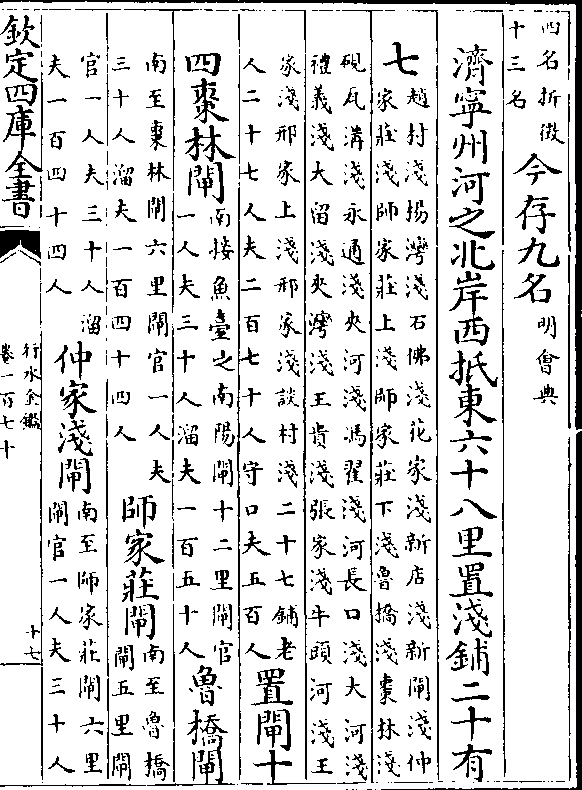 四名折徴
十三名
今存九名
明會典
濟寧州河之北岸西抵東六十八里置淺鋪二十有
七
趙村淺楊灣淺石佛淺花家淺新店淺新閘淺仲
家莊淺師家莊上淺師家莊下淺魯橋淺棗林淺
硯瓦溝淺永通淺夾河淺馮翟淺河長口淺大河淺
禮義淺大留淺夾灣淺王貴淺張家淺牛頭河淺王
家淺邢家上淺邢家淺談村淺二十七鋪老
人二十七人夫二百七十人守口夫五百人
置閘十
四棗林閘
南接魚臺之南陽閘十二里閘官
一人夫三十人溜夫一百五十人
魯橋閘
南至棗林閘六里閘官一人夫
三十人溜夫一百四十四人
師家莊閘
南至魯橋
閘五里閘
官一人夫三十人溜
夫一百四十四人
仲家淺閘
南至師家莊閘六里
閘官一人夫三十人
欽定四庫全書
行水金鑑
卷一百七十
十七